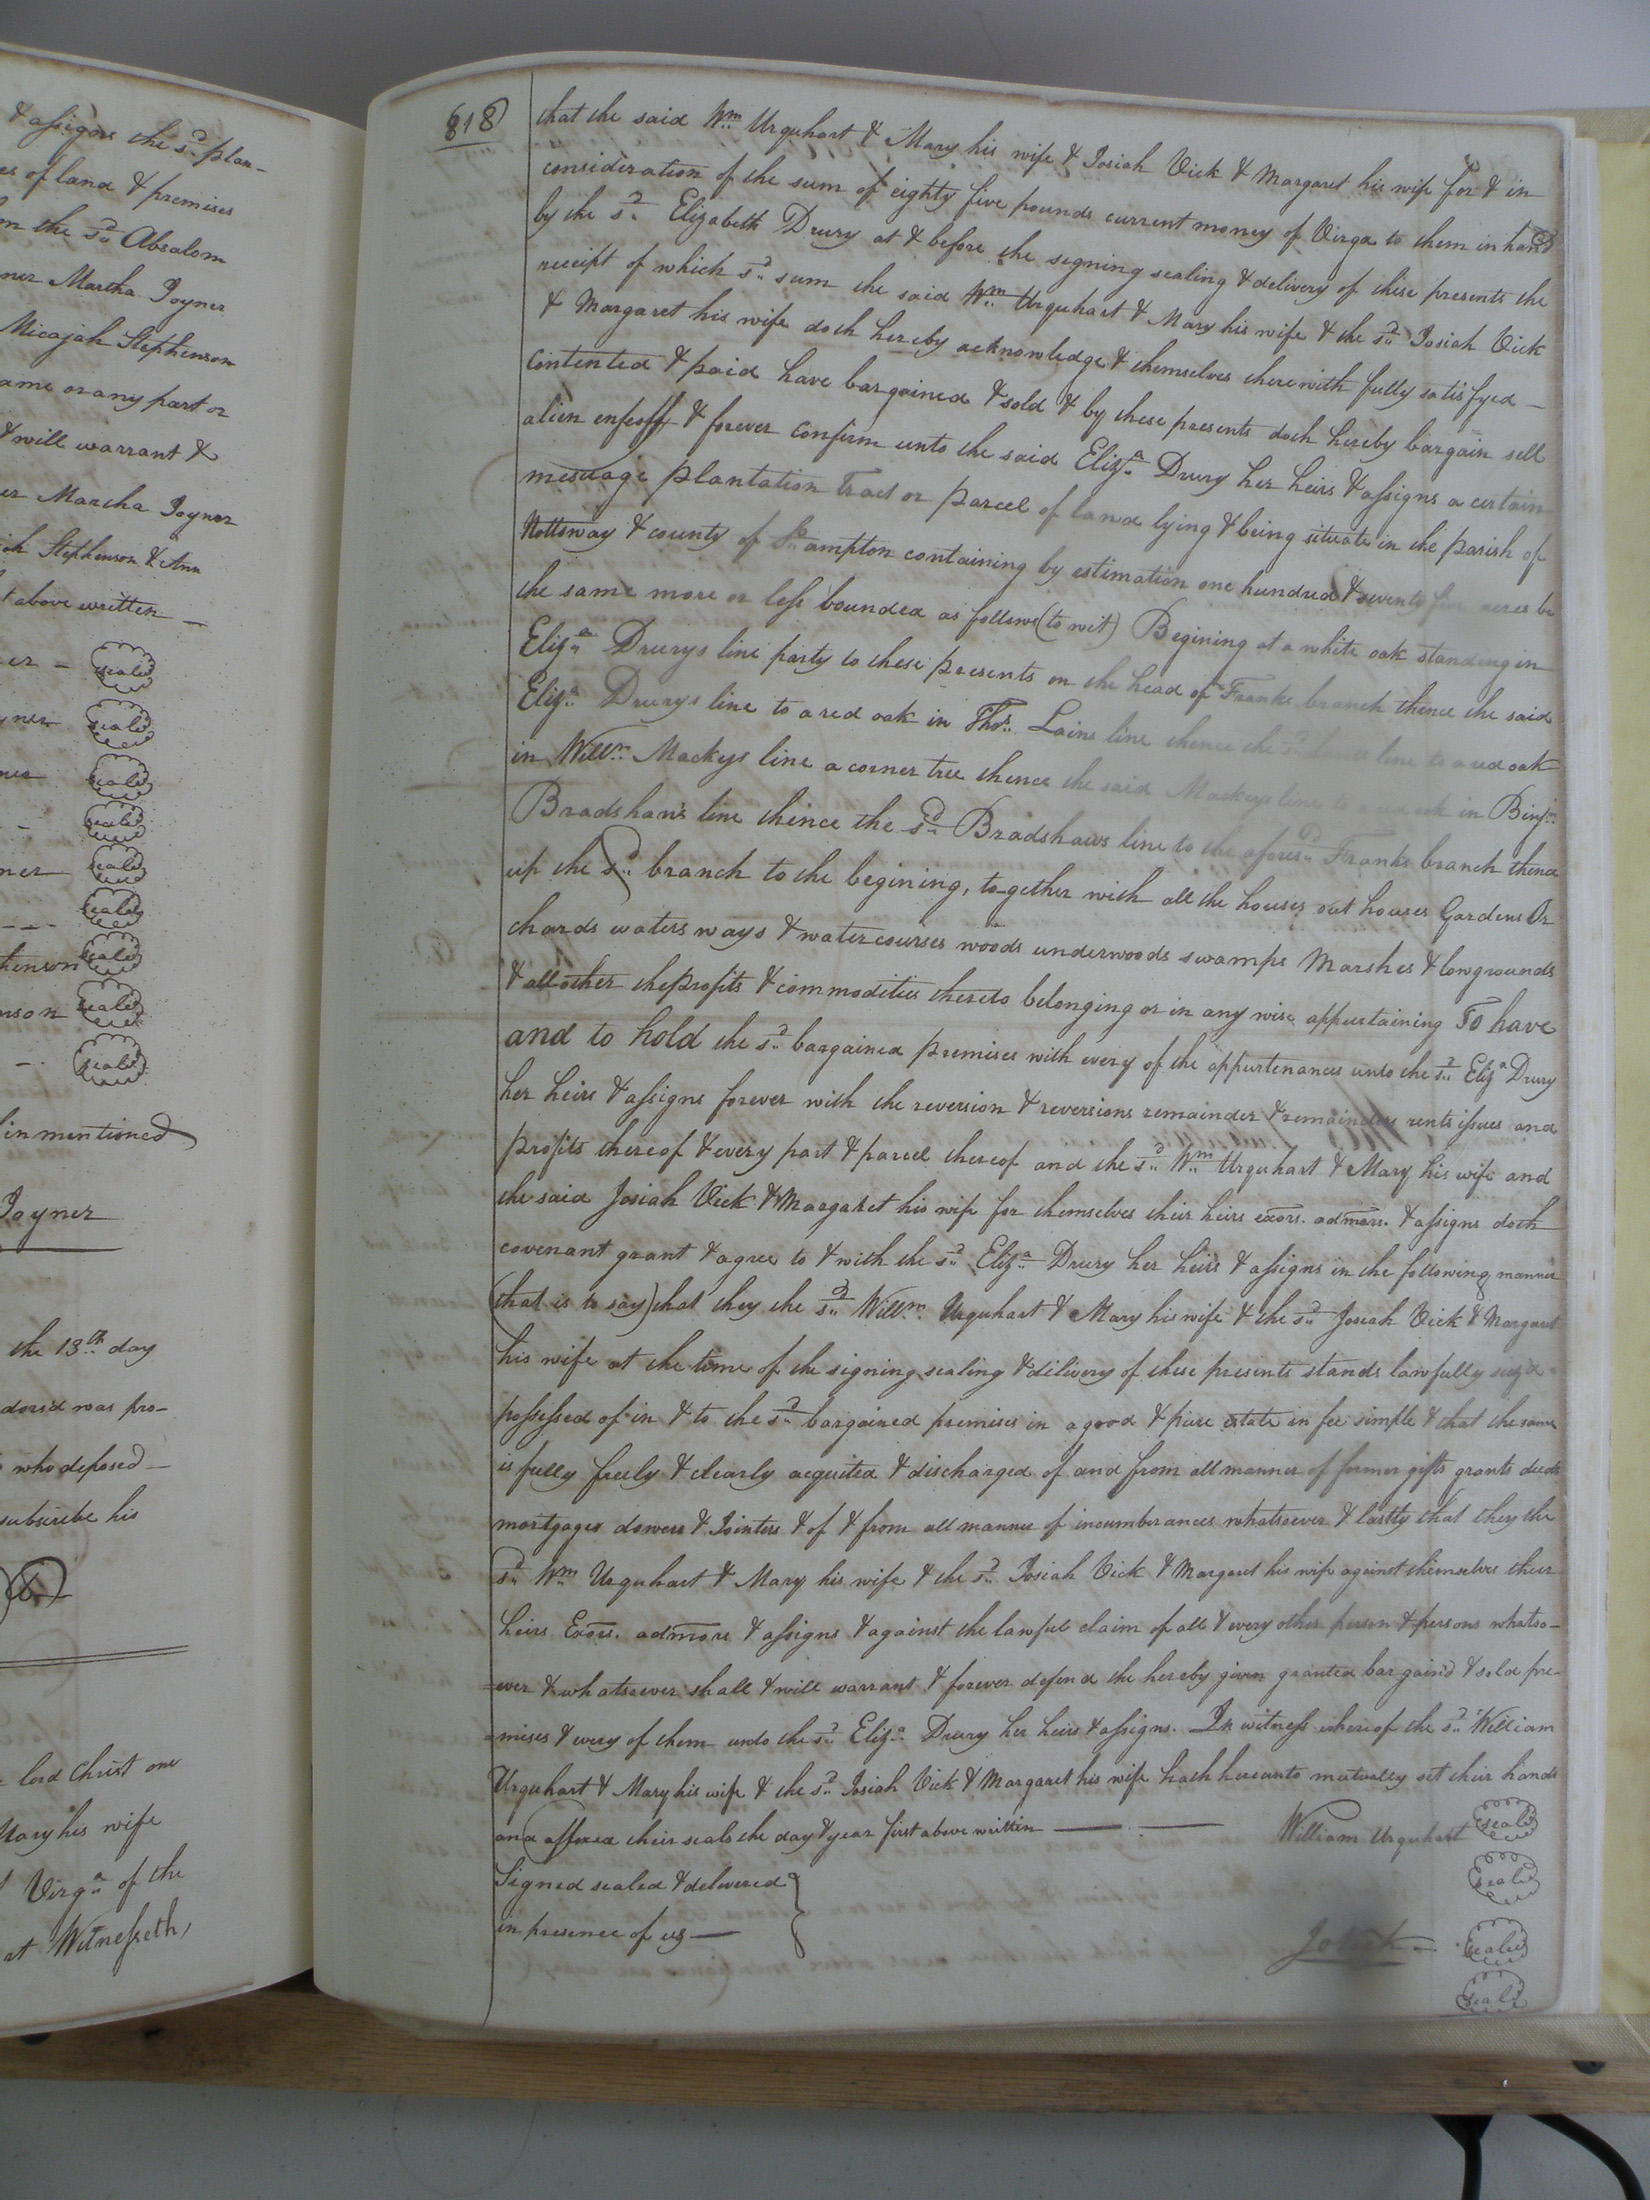 & assigns the sd. plan-
es of land & premises
m the sd. Absalom
ner Martha Joyner
Micajah Stephenson
ame or any part or
& will warrant &
er Martha Joyner
ah Stephenson & Ann
t above written —
er — seal
yner seal
ner seal
- seal
ner seal
--- seal
henson seal
nson seal
- seal
in mentioned
Joyner
the 13th. day
dors'd was pro-
who deposed —
subscribe his
lord Christ one
Mary his wife
Virga. of the
at Witnesseth,
818
that the said Wm. Urquhart & Mary his wife & Josiah Vick & Margaret his wife for & in
consideration of the sum of eighty five pounds current money of Virga to them in hand
by the sd. Elizabeth Drury at & before the signing sealing & delivery of these presents the
receipt of which sd. sum the said Wm. Urquhart & Mary his wife & the sd. Josiah Vick
& Margaret his wife doth hereby acknowledge & themselves therewith fully satisfyed —
contented & paid have bargained & sold & by these presents doth hereby bargain sell
alien enfeoff & forever confirm unto the said Eliza. Drury her heirs & assigns a certain
messuage plantation tract or parcel of land lying & being situate in the parish of
Nottoway & county of So.ampton containing by estimation one hundred & seventy five acres be
the same more or less bounded as follows (to wit) Begining at a white oak standing in
Eliza. Drurys line party to these presents on the head of Franks branch thence the said
Eliza. Drurys line to a red oak in Thos. Lains line thence the sd. line to a red oak
in Willm. Mackeys line a corner tree thence the said Mackeys line to a red oak in Binjn.
Bradshaw's line thence the sd. Bradshaws line to the aforesd. Franks branch thence
up the sd. branch to the begining, to-gether with all the houses out houses Gardens Or
chards waters ways & watercourses woods underwoods swamps Marshes & lowgrounds
& all other the profits & commodities thereto belonging or in any wise appurtaining To have
and to hold the sd. bargained premises with every of the appurtenances unto the sd. Eliza Drury
her heirs & assigns forever with the reversion & reversions remainder & remainders rents issues and
profits thereof & every part & parcel thereof and the sd. Wm. Urquhart & Mary his wife and
the said Josiah Vick & Margaret his wife for themselves their heirs exors. admors. & assigns doth
covenant grant & agree to & with the sd. Eliza. Drury her heirs & assigns in the following manner
(that is to say) that they the sd. Willm. Urquhart & Mary his wife & the sd. Josiah Vick & Margaret
his wife at the time of the signing sealing & delivery of these presents stands lawfully seiz'd
possessed of in & to the sd. bargained premises in a good & pure estate in fee simple & that the same
is fully freely & clearly acquited & discharged of and from all manner of former gifts grants deeds
mortgages dowers & Jointers & of & from all manner of incumberances whatsoever & lastly that they the
sd. Wm. Urquhart & Mary his wife & the sd. Josiah Vick & Margaret his wife against themselves their
heirs Exors. admors & assigns & against the lawful claim of all & every other person & persons whatso-
=ever & whatsoever shall & will warrant & forever defend the hereby given granted bargain'd & sold pre-
=mises & every of them unto the sd. Eliza. Drury her heirs & assigns. In witness whereof the sd. William
Urquhart & Mary his wife & the sd. Josiah Vick & Margaret his wife hath hereunto mutually set their hands
and affixed their seals the day & year first above written — . — William Urquhart seal
Signed sealed & delivered } seal
in presence of us — seal
seal